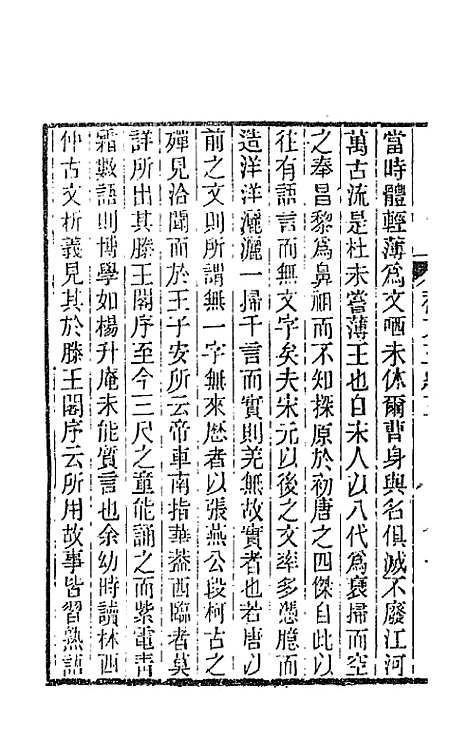 當時體輕薄爲文哂未休爾曹身與名俱滅不廢江河
萬古流是杜未嘗薄王也自宋人以八代爲衰掃而空
之奉昌黎爲鼻祖而不知探原於初唐之四傑自此以
往有語言而無文字矣夫宋元以後之文率多憑臆而
造洋洋灑灑一掃千言而實則羌無故實者也若唐以
前之文則所謂無一字無來歷者以張燕公段柯古之
殫見洽聞而於王子安所云帝車南指華葢西臨者莫
詳所出其滕王閣序至今三尺之童能誦之而紫電靑
霜數語則博學如楊升庵未能質言也余幼時讀林西
仲古文析義見其於滕王閣序云所用故事皆習熟語